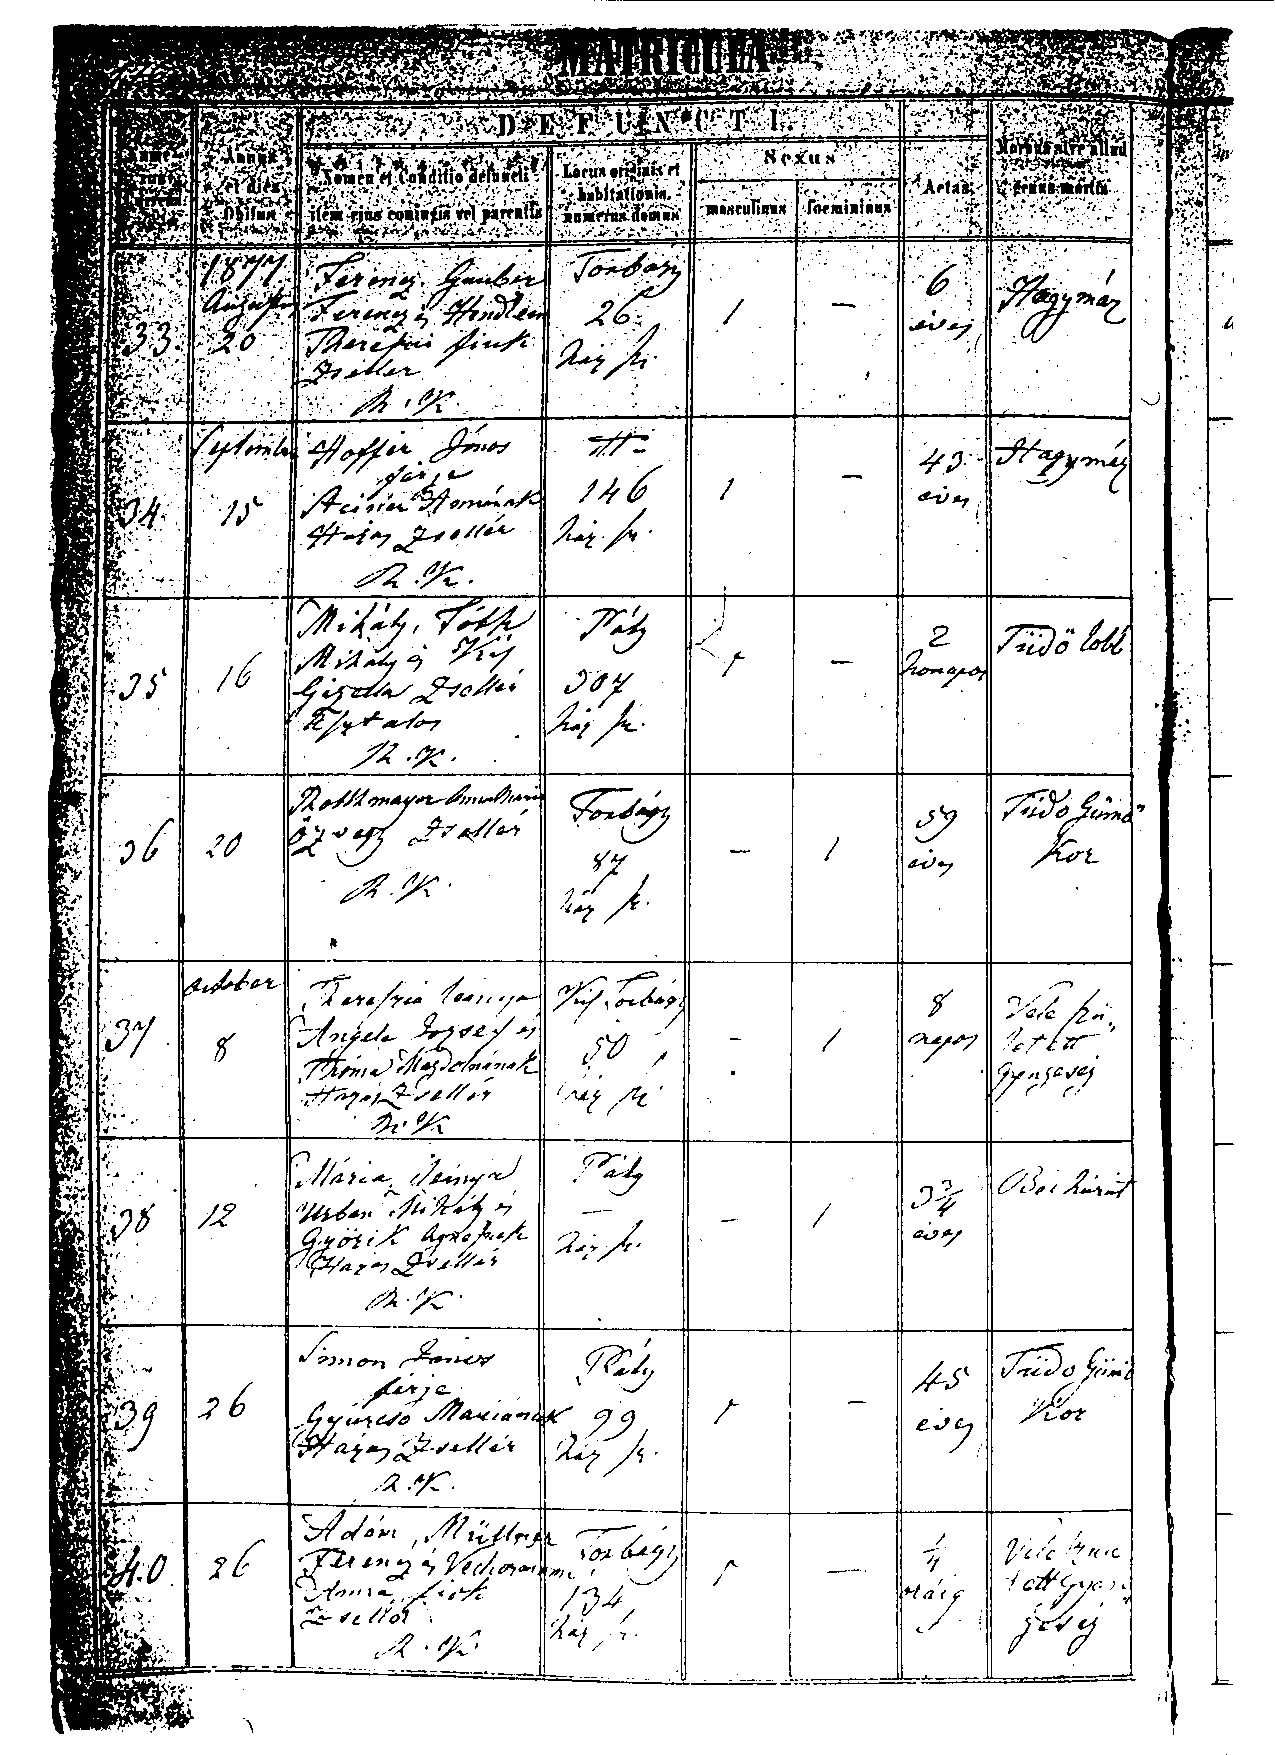 MATRICULA
DEFUNCTI
Annus et dies Obitus
Nomen et Conditio defuncti item ejus conjugis vel parentis
Locus originis et habitationis, numerus domus
Sexus
masculinus
foemininus
Aetas
Morbus sive aliud genus mortis
33.
1877
20
Ferencz, Gauber
Ferencz és
fiuk
Zseller
R. K.
Torbágy
26.
ház sz.
1
—
6
éves
Hagymáz
34
September
15
Hoffer János
férje
Hazas Zsellér
R. K.
146
ház sz.
1
—
43
éves
Hagymáz
35
16
Mihály, Tóth
Mihály és
Gizella Zsellér
R. K.
Páty
307
ház sz.
1
—
2
honapos
Tüdő lobb
36
20
özvegy Zsellér
R. K.
Torbágy
87
ház sz.
—
1
59
éves
Tüdo Gümő
Kor
37
October
8
leánya
Angele Jozsef és
Thoma Magdolnának
Hazas Zsellér
R. K.
Torbágy
50
ház sz.
—
1
8
napos
Vele szü
letett
Gyengeség
38
12
Mária, leánya
Urban Mihály és
Györik
Hazas Zsellér
R. K.
Páty
—
ház sz.
—
1
3 3/4
éves
39
26
Simon János
férje
Gyurcso Mariának
Hazas Zsellér
R. K.
Páty
99
ház sz.
1
—
45
éves
Tüdo Gümő
Kor
40
26
Adám, Müllner
Ferencz és
Anna fiok
Zsellér
R. K.
Torbágy
134
ház sz.
1
—
1/4
óráig